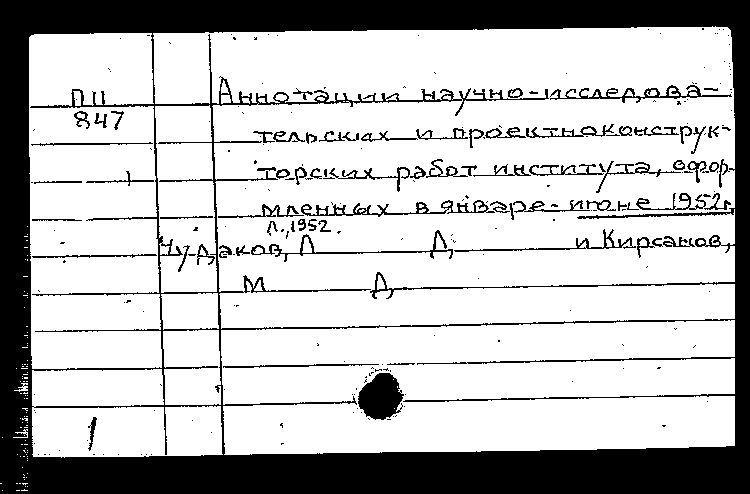 П II
847
1
Аннотации научно-исследова-
тельских и проектноконструк-
торских работ института, офор-
мленных в январе-июне 1952г.
Л., 1952.
Чудаков, Л Д и Кирсанов,
М Д
1